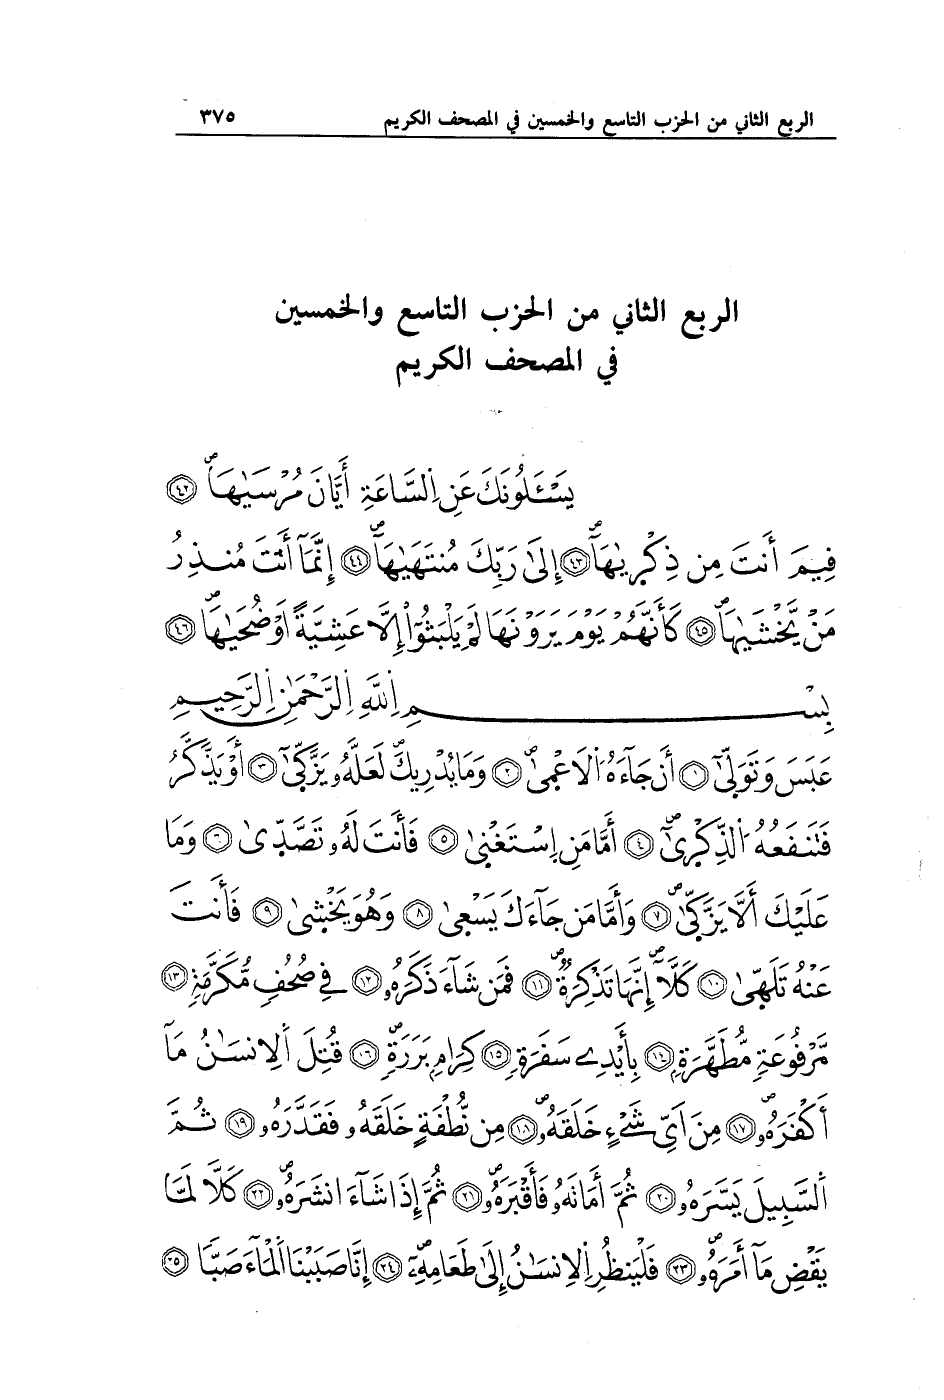 الربع الثاني من الحزب التاسع والخمسين في المصحف الكريم ٣٧٥
الربع الثاني من الحزب التاسع والخمسين
في المصحف الكريم
يَسْـَٔلُونَكَ عَنِ اِ۬لسَّاعَةِ أَيَّانَ مُرْسَيٰهَاۖ ٤٢
فِيمَ أَنتَ مِن ذِكْر۪يٰهَآۖ ٤٣ إِلَىٰ رَبِّكَ مُنتَهَيٰهَآۖ ٤٤ إِنَّمَآ أَنتَ مُنذِرُ
مَنْ يَّخْشَيٰهَاۖ ٤٥ كَأَنَّهُمْ يَوْمَ يَرَوْنَهَا لَمْ يَلْبَثُوٓاْ إِلَّا عَشِيَّةً اَوْ ضُحَيٰهَاۖ ٤٦
بِسْمِ اِ۬للَّهِ اِ۬لرَّحْمَٰنِ اِ۬لرَّحِيمِ
عَبَسَ وَتَوَلَّىٰٓ ١ أَن جَآءَهُ اُ۬لَاعْمَىٰۖ ٢ وَمَا يُدْرِيكَ لَعَلَّهُۥ يَزَّكَّىٰٓ ٣ أَوْ يَذَّكَّرُ
فَتَنفَعُهُ اُ۬لذِّكْر۪ىٰٓۖ ٤ أَمَّا مَنِ اِ۪سْتَغْنَىٰ ٥ فَأَنتَ لَهُۥ تَصَّدَّىٰ ٦ وَمَا
عَلَيْكَ أَلَّا يَزَّكَّىٰۖ ٧ وَأَمَّا مَن جَآءَكَ يَسْعَىٰ ٨ وَهُوَ يَخْشَىٰ ٩ فَأَنتَ
عَنْهُ تَلَهَّىٰ ١٠ كَلَّآ إِنَّهَا تَذْكِرَةٌۖ ١١ فَمَن شَآءَ ذَكَرَهُۥ ١٢ فِے صُحُفٍ مُّكَرَّمَةٍ ١٣
مَّرْفُوعَةٍ مُّطَهَّرَةٍ ١٤ بِأَيْدِے سَفَرَةٍ ١٥ كِرَامٍ بَرَرَةٍۖ ١٦ قُتِلَ اَ۬لِانسَٰنُ مَآ
أَكْفَرَهُۥۖ ١٧ مِنَ اَيِّ شَےْءٍ خَلَقَهُۥۖ ١٨ مِن نُّطْفَةٍ خَلَقَهُۥ فَقَدَّرَهُۥ ١٩ ثُمَّ
اَ۬لسَّبِيلَ يَسَّرَهُۥ ٢٠ ثُمَّ أَمَاتَهُۥ فَأَقْبَرَهُۥۖ ٢١ ثُمَّ إِذَا شَآءَ انشَرَهُۥۖ ٢٢ كَلَّا لَمَّا
يَقْضِ مَآ أَمَرَهُۥۖ ٢٣ فَلْيَنظُرِ اِ۬لِانسَٰنُ إِلَىٰ طَعَامِهِۦٓۖ ٢٤ إِنَّا صَبَبْنَا اَ۬لْمَآءَ صَبّٗا ٢٥